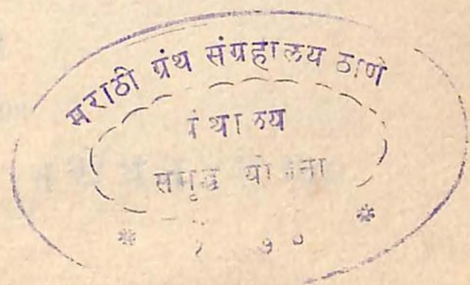 मराठी ग्रंथ संग्रहालय ठाणे
ग्रंथालय
समृद्ध योजना
* *